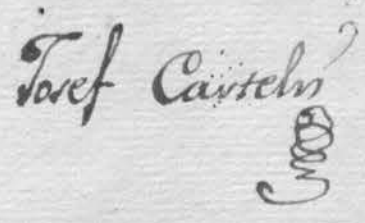 Josef Cartelù